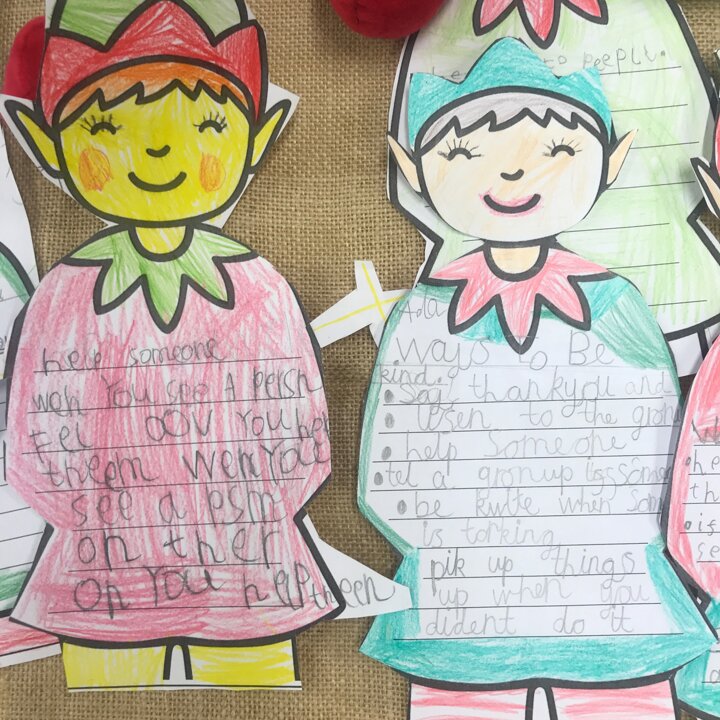 help someone
weh You see A persn
fel oov You hep
theem weh You
see a psin
on ther
on You help theen
to peeplu.
Ada
Ways to Be
kind.
• Say thankyou and
• lisen to the gron
• help Someone
• tel a gronup is som
• be kwite when som
is torking
pik up things
up when you
dident do it